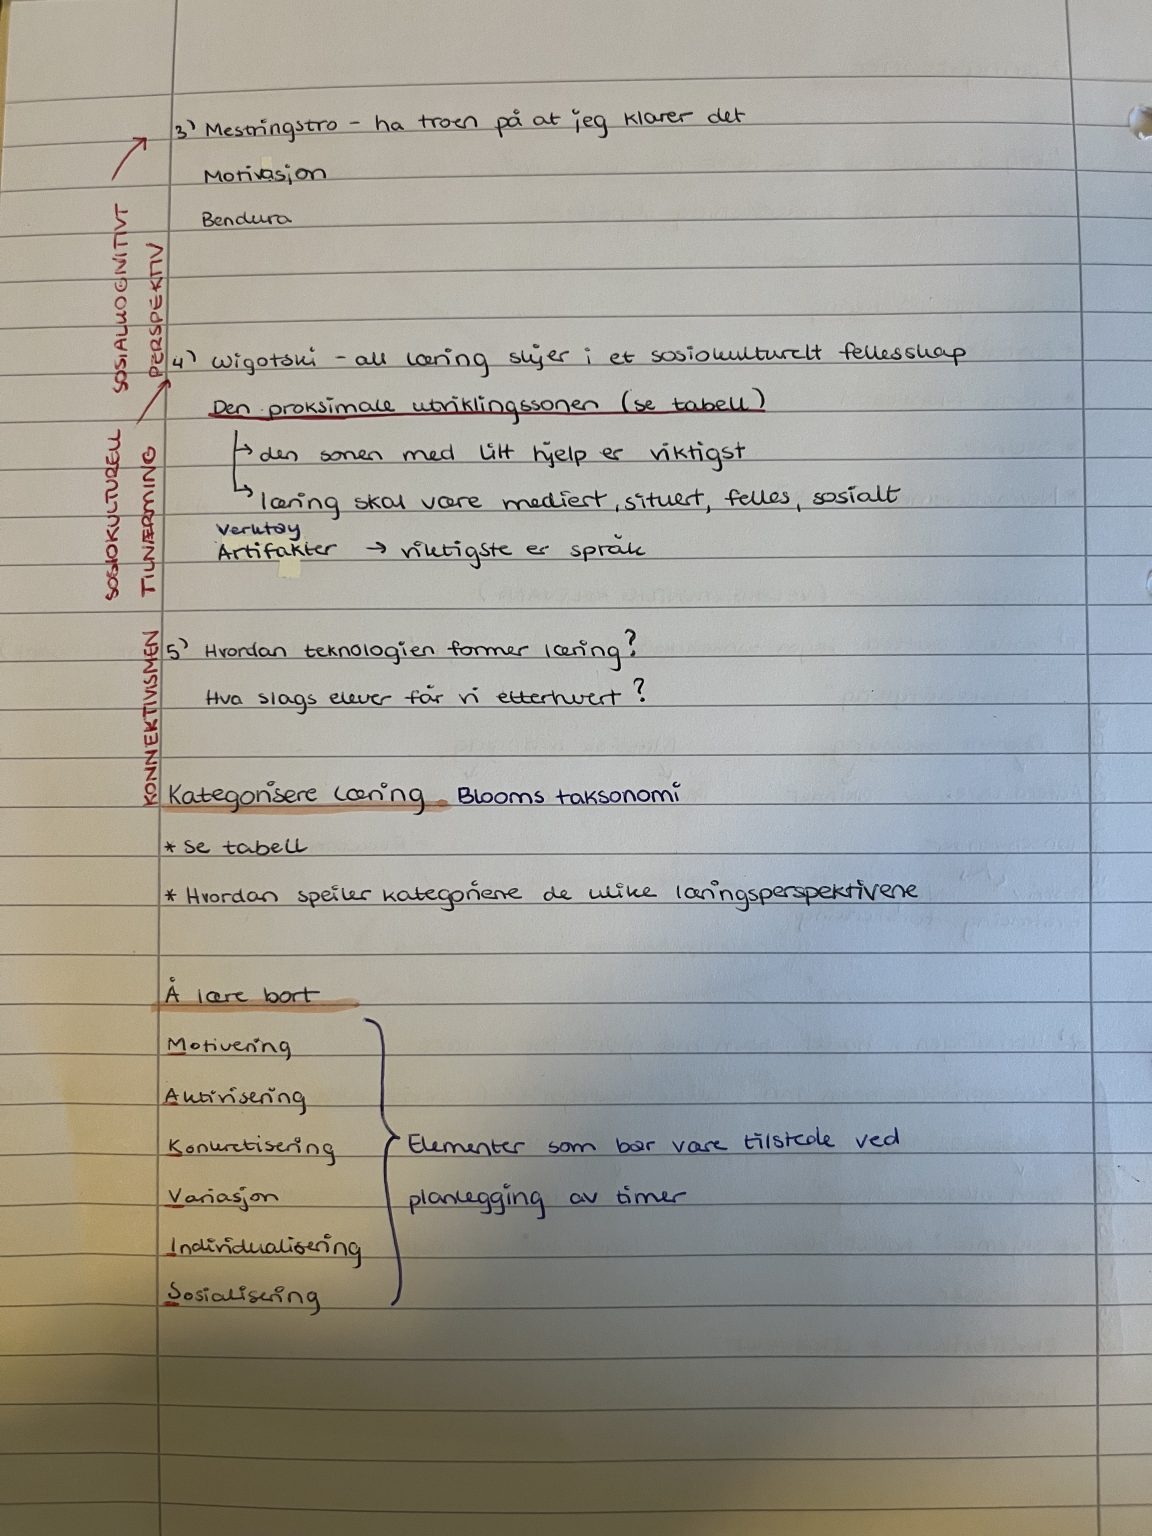 3) Mestringstro - ha troen på at jeg klarer det
Motivasjon
Bendura
SOSIALKOGNITIVT
PERSPEKTIV
4) Wigotski - all læring skjer i et sosiokulturelt fellesskap
Den proksimale utviklingssonen (se tabell)
den sonen med litt hjelp er viktigst
læring skal være mediert, situert, felles, sosialt
Verktøy
Artifakter → viktigste er språk
SOSIOKULTURELL
TILNÆRMING
5) Hvordan teknologien former læring?
Hva slags elever får vi etterhvert?
KONNEKTIVISMEN
Kategorisere læring Blooms taksonomi
* Se tabell
* Hvordan speiler kategoriene de ulike læringsperspektivene
Å lære bort
Motivering
Aktivisering
Konkretisering
Variasjon
Individualisering
Sosialisering
Elementer som bør være tilstede ved
planlegging av timer